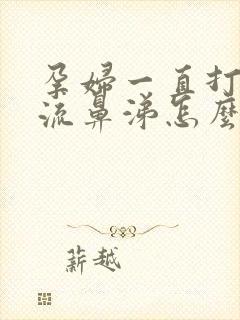 孕婦一直打
流鼻涕怎麼
薪越